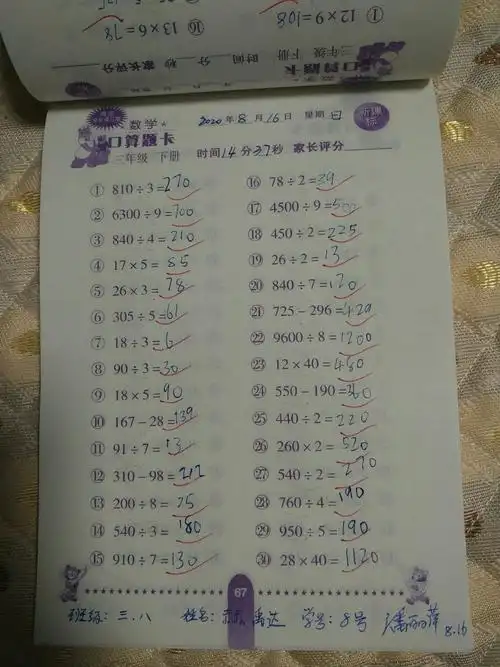 ① 12×9=108
⑯ 13×6=78
三年级 下册 时间 分 秒 家长评分
口算题卡
数学 2020年8月16日 星期日 新课标
口算题卡
三年级 下册 时间14分37秒 家长评分
① 810÷3=270
② 6300÷9=700
③ 840÷4=210
④ 17×5=85
⑤ 26×3=78
⑥ 305÷5=61
⑦ 18÷3=6
⑧ 90÷3=30
⑨ 18×5=90
⑩ 167-28=139
⑪ 91÷7=13
⑫ 310-98=212
⑬ 200÷8=25
⑭ 540÷3=180
⑮ 910÷7=130
⑯ 78÷2=39
⑰ 4500÷9=500
⑱ 450÷2=225
⑲ 26÷2=13
⑳ 840÷7=120
㉑ 725-296=429
㉒ 9600÷8=1200
㉓ 12×40=480
㉔ 550-190=360
㉕ 440÷2=220
㉖ 260×2=520
㉗ 540÷2=270
㉘ 760÷4=190
㉙ 950÷5=190
㉚ 28×40=1120
67
班级:三.八 姓名: 禹达 学号:8号 潘丽萍 8.16